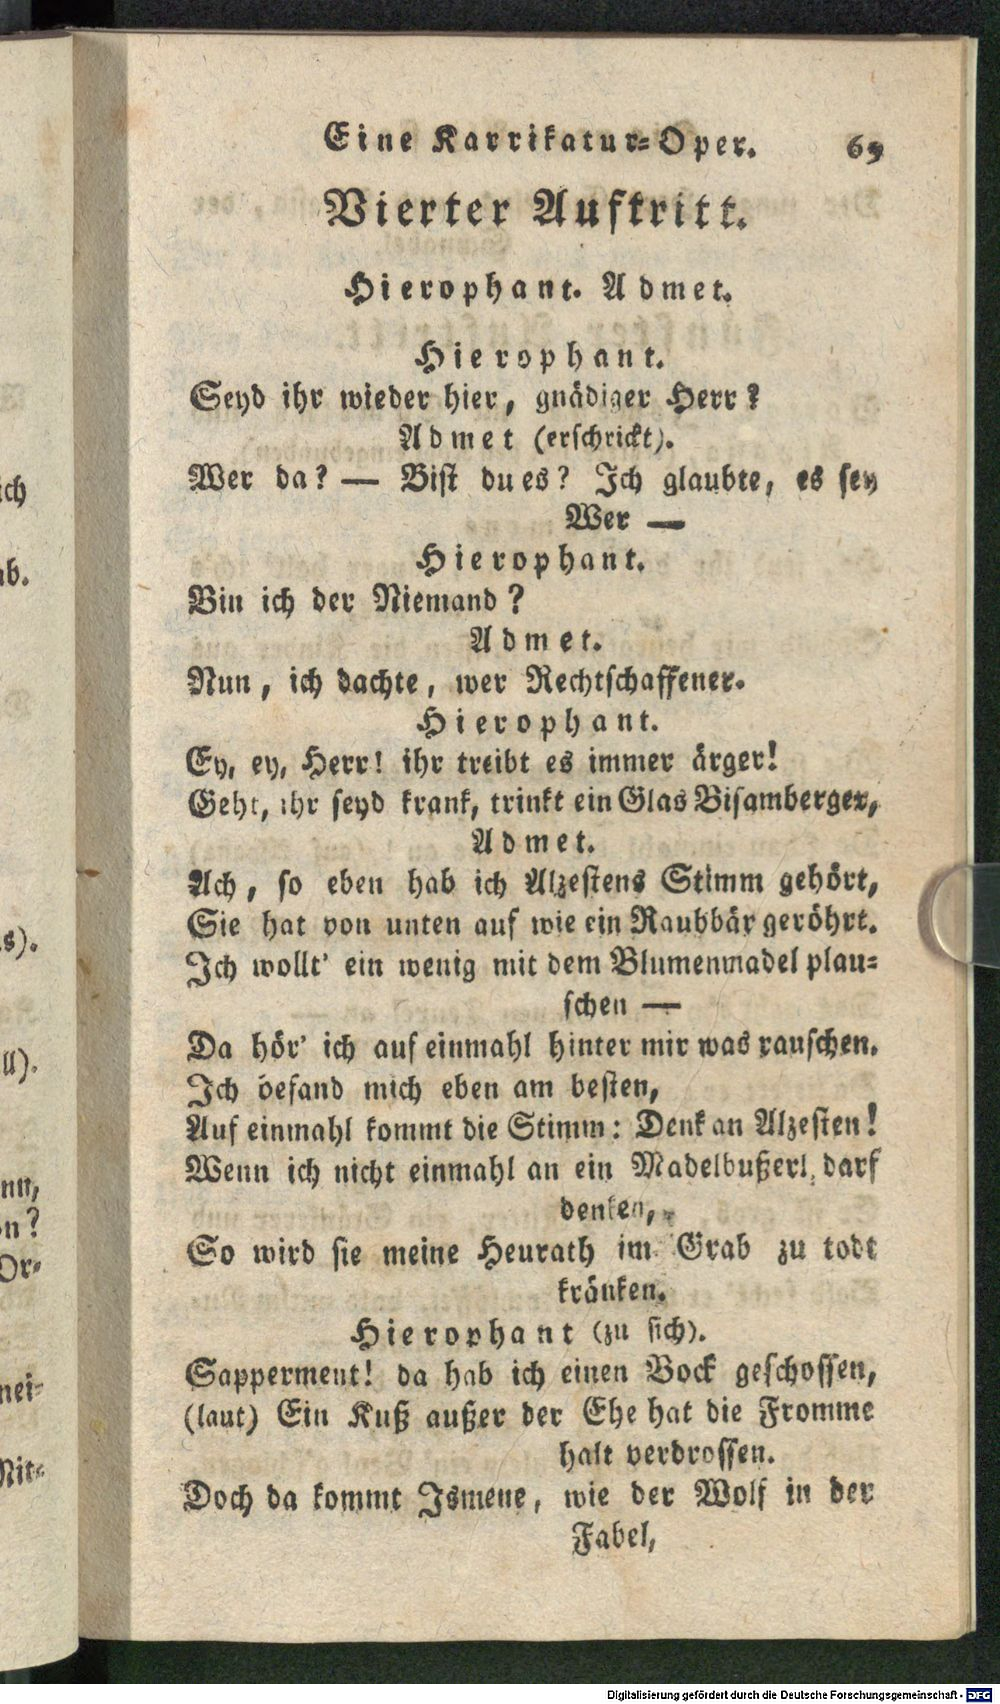 Eine Karrikatur-Oper. 69
Vierter Auftritt.
Hierophant. Admet.
Hierophant.
Seyd ihr wieder hier, gnädiger Herr?
Admet (erschrickt).
Wer da? — Bist du es? Ich glaubte, es sey
Wer —
Hierophant.
Bin ich der Niemand?
Admet.
Nun, ich dachte, wer Rechtschaffener.
Hierophant.
Ey, ey, Herr! ihr treibt es immer ärger!
Geht, ihr seyd krank, trinkt ein Glas Bisamberger,
Admet.
Ach, so eben hab ich Alzestens Stimm gehört,
Sie hat von unten auf wie ein Raubbär geröhrt.
Ich wollt' ein wenig mit dem Blumenmadel plau-
schen —
Da hör' ich auf einmahl hinter mir was rauschen.
Ich befand mich eben am besten,
Auf einmahl kommt die Stimm: Denk an Alzesten!
Wenn ich nicht einmahl an ein Madelbußerl darf
denken,
So wird sie meine Heurath im Grab zu todt
kränken.
Hierophant (zu sich).
Sapperment! da hab ich einen Bock geschossen,
(laut) Ein Kuß außer der Ehe hat die Fromme
halt verdrossen.
Doch da kommt Ismene, wie der Wolf in der
Fabel,
ich
ab.
s).
ll).
nn,
on?
Or-
nei-
Nit-
Digitalisierung gefördert durch die Deutsche Forschungsgemeinschaft - DFG